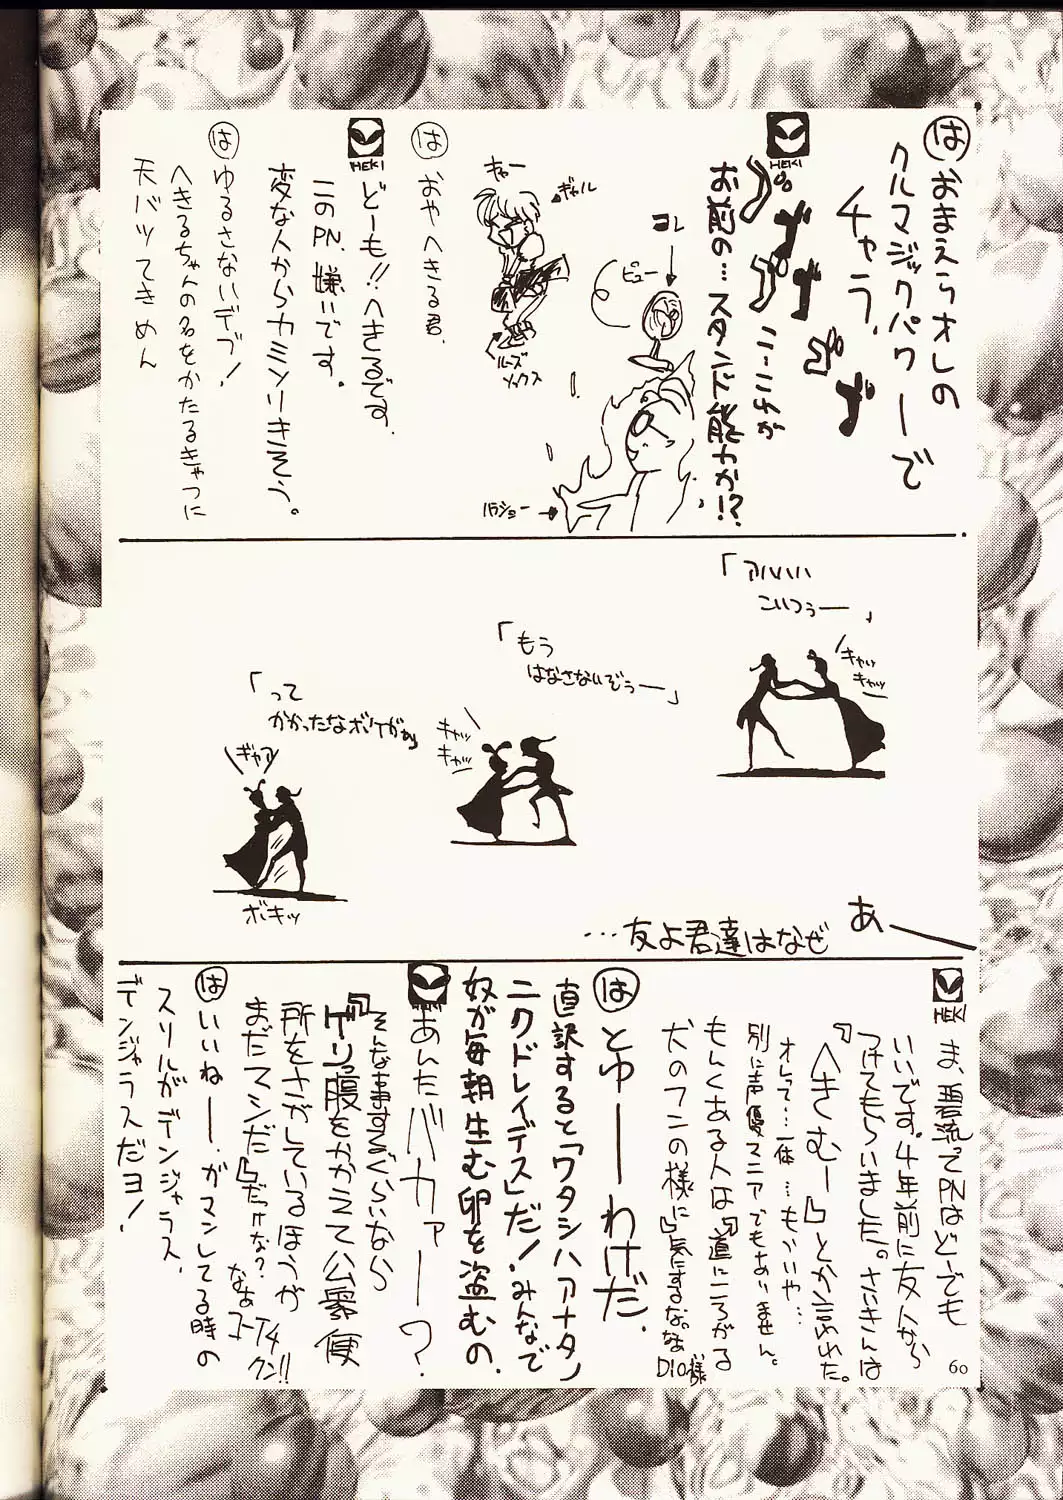 は おまえらオレの
クルマジックパワーで
チャラ、
HEKI
お前の…スタンド能力か!?
コレ
ビュー
ギャル
ルーズ
ソックス
は おやへきる君、
HEKI
どーも!!へきるです、
このPN、嫌いです。
変な人からカミソリきそう。
は ゆるさないデブ!
へきるちゃんの名をかたるきゃつに
天バツてきめん
「アハハハ
こいつぅー」
キャッ
キャッ
「もう
はなさないぞぅー」
キャッ
キャッ
「って
かかったなボケがぁ」
ギャア
ボキッ
あー
…友よ君達はなぜ
HEKI
ま、碧流ってPNはどーでも
いいです。4年前に友人から
つけてもらいました。さいきんは
『へきむー』とか言われた。
オレって…一体…もういや…
別に声優マニアでもありません。
もしくある人は『道にころがる
犬のフンの様に』気にするな。なぁ
DIO様
は とゆーわけだ、
直訳すると「ワタシハアナタノ
ニクドレイデス」だ!みんなで
奴が毎朝生む卵を盗むの、
あんたバカァー?
そんな事するぐらいなら
『ゲリ腹をかかえて公衆便
所をさがしているほうが
まだマシだ』だっけな?
なぁ
コーイチ
クン!!
は いいねー、ガマンしてる時の
スリルがデンジャラス、
デンジャラスだヨ!
60